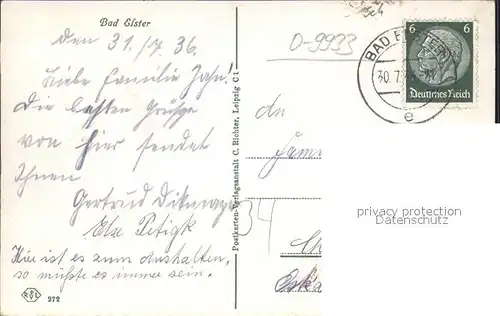 Bad Elster
den 31/7 36.
Liebe Familie Jahn!
Die besten Grüße
von hier sendet
Ihnen
Gertrud
Else Petigk
Hier ist es zum Aushalten,
so müßte es immer sein.
272
Postkarten-Verlagsanstalt C. Richter, Leipzig C 1
O-9933
An
Fam
34
6 6
Deutsches Reich
BAD ELSTER
30.7.
e
privacy protection
Datenschutz